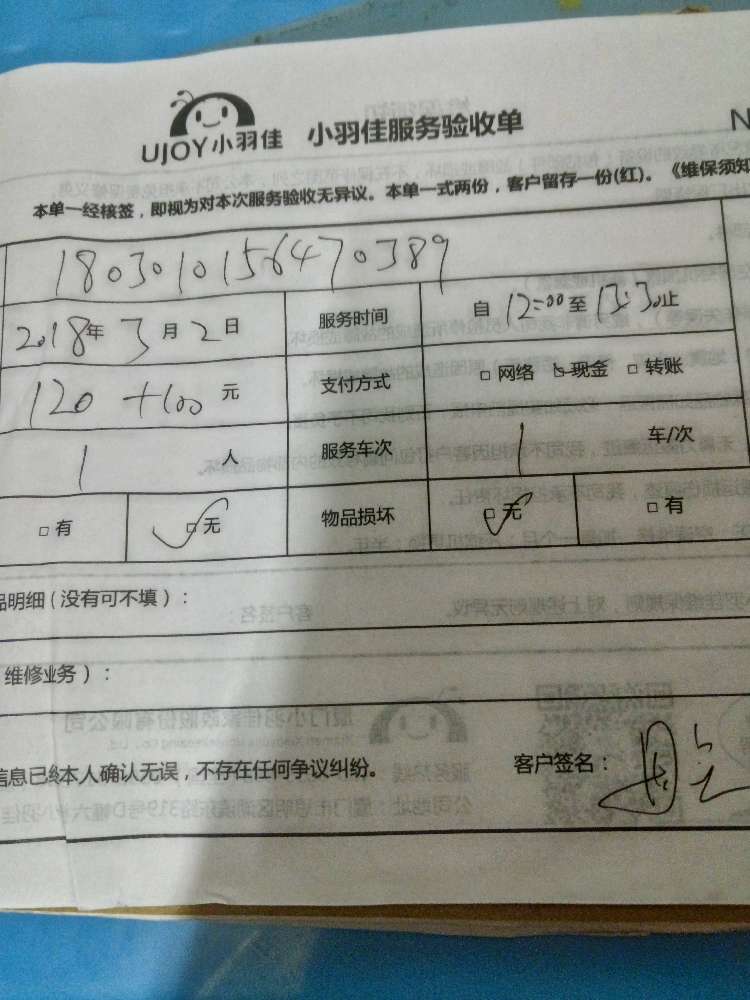 UJOY小羽佳 小羽佳服务验收单 N
本单一经核签，即视为对本次服务验收无异议。本单一式两份，客户留存一份(红)。《维保须知
1803010156470389
2018年3月2日 服务时间 自12:00至13:30止
120+100元 支付方式 □网络 □现金 □转账
1人 服务车次 1车/次
□有 □无 物品损坏 □无 □有
品明细(没有可不填)：
维修业务)：
信息已经本人确认无误，不存在任何争议纠纷。 客户签名：